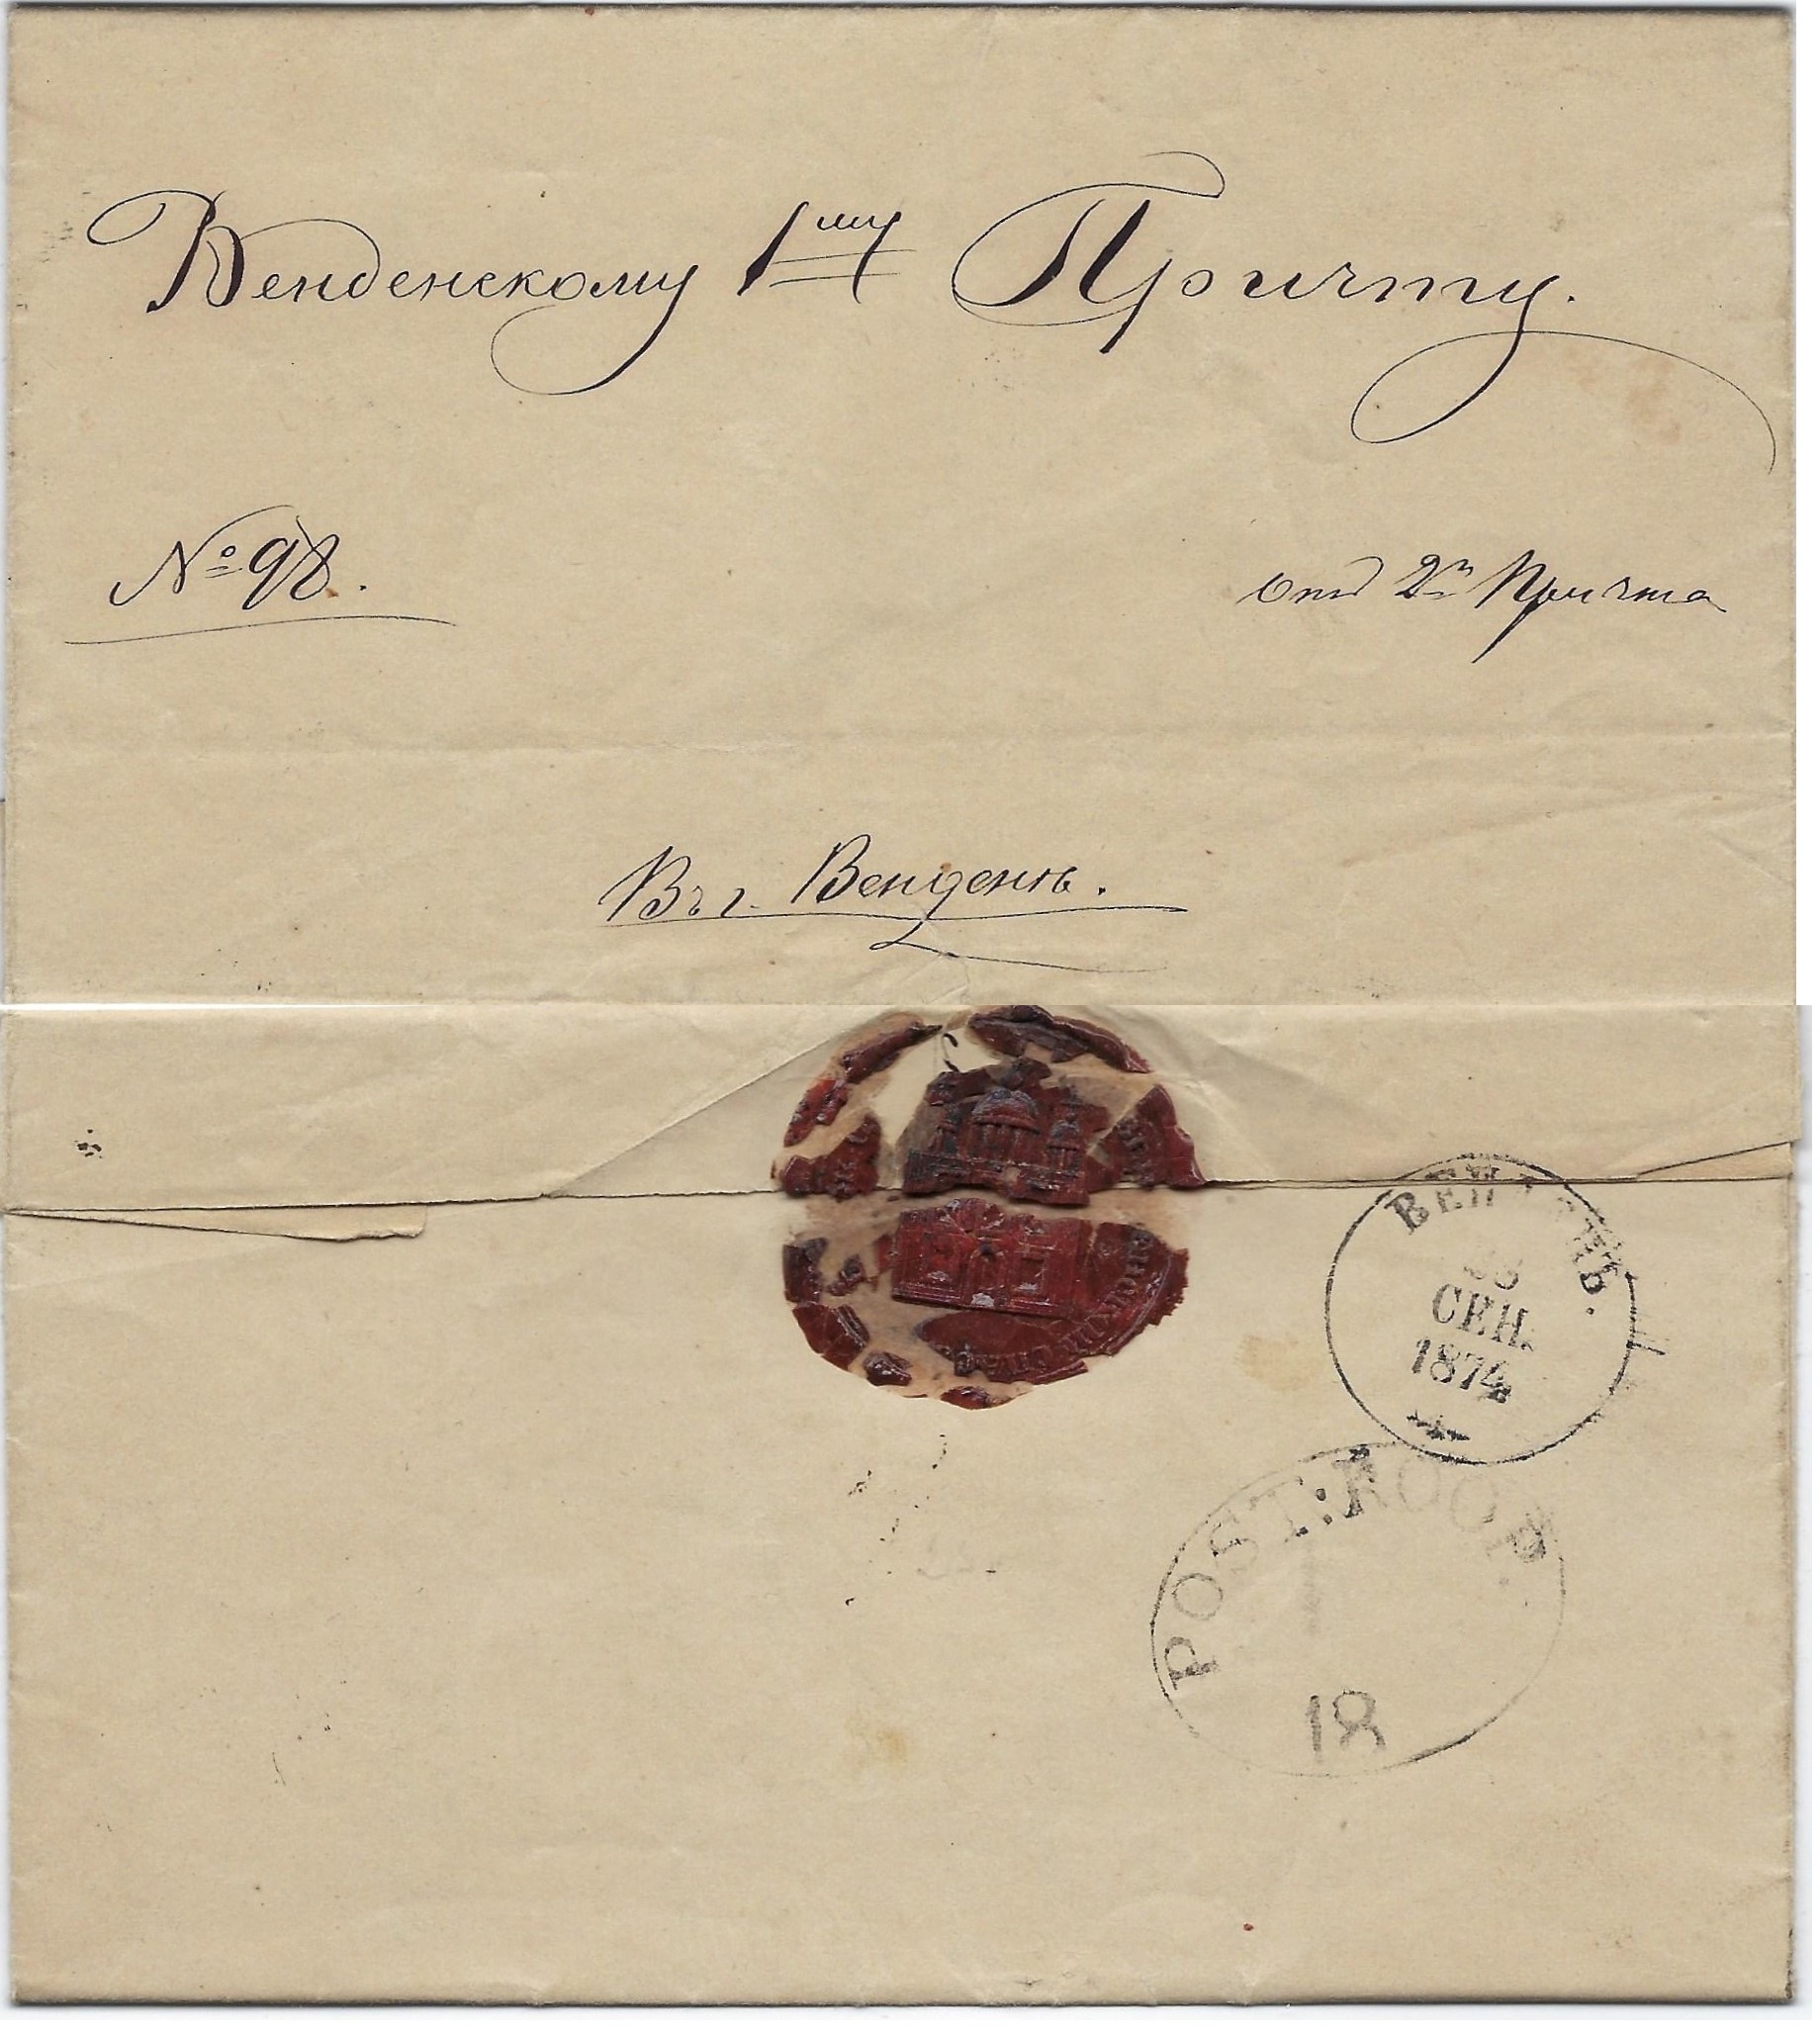 Венденскому 1му Причту.
№ 98.
отъ 2го Причта
Въ г. Венденѣ.
ВЕНДЕНЪ.
СЕН.
1874
POST: ROOP.
18